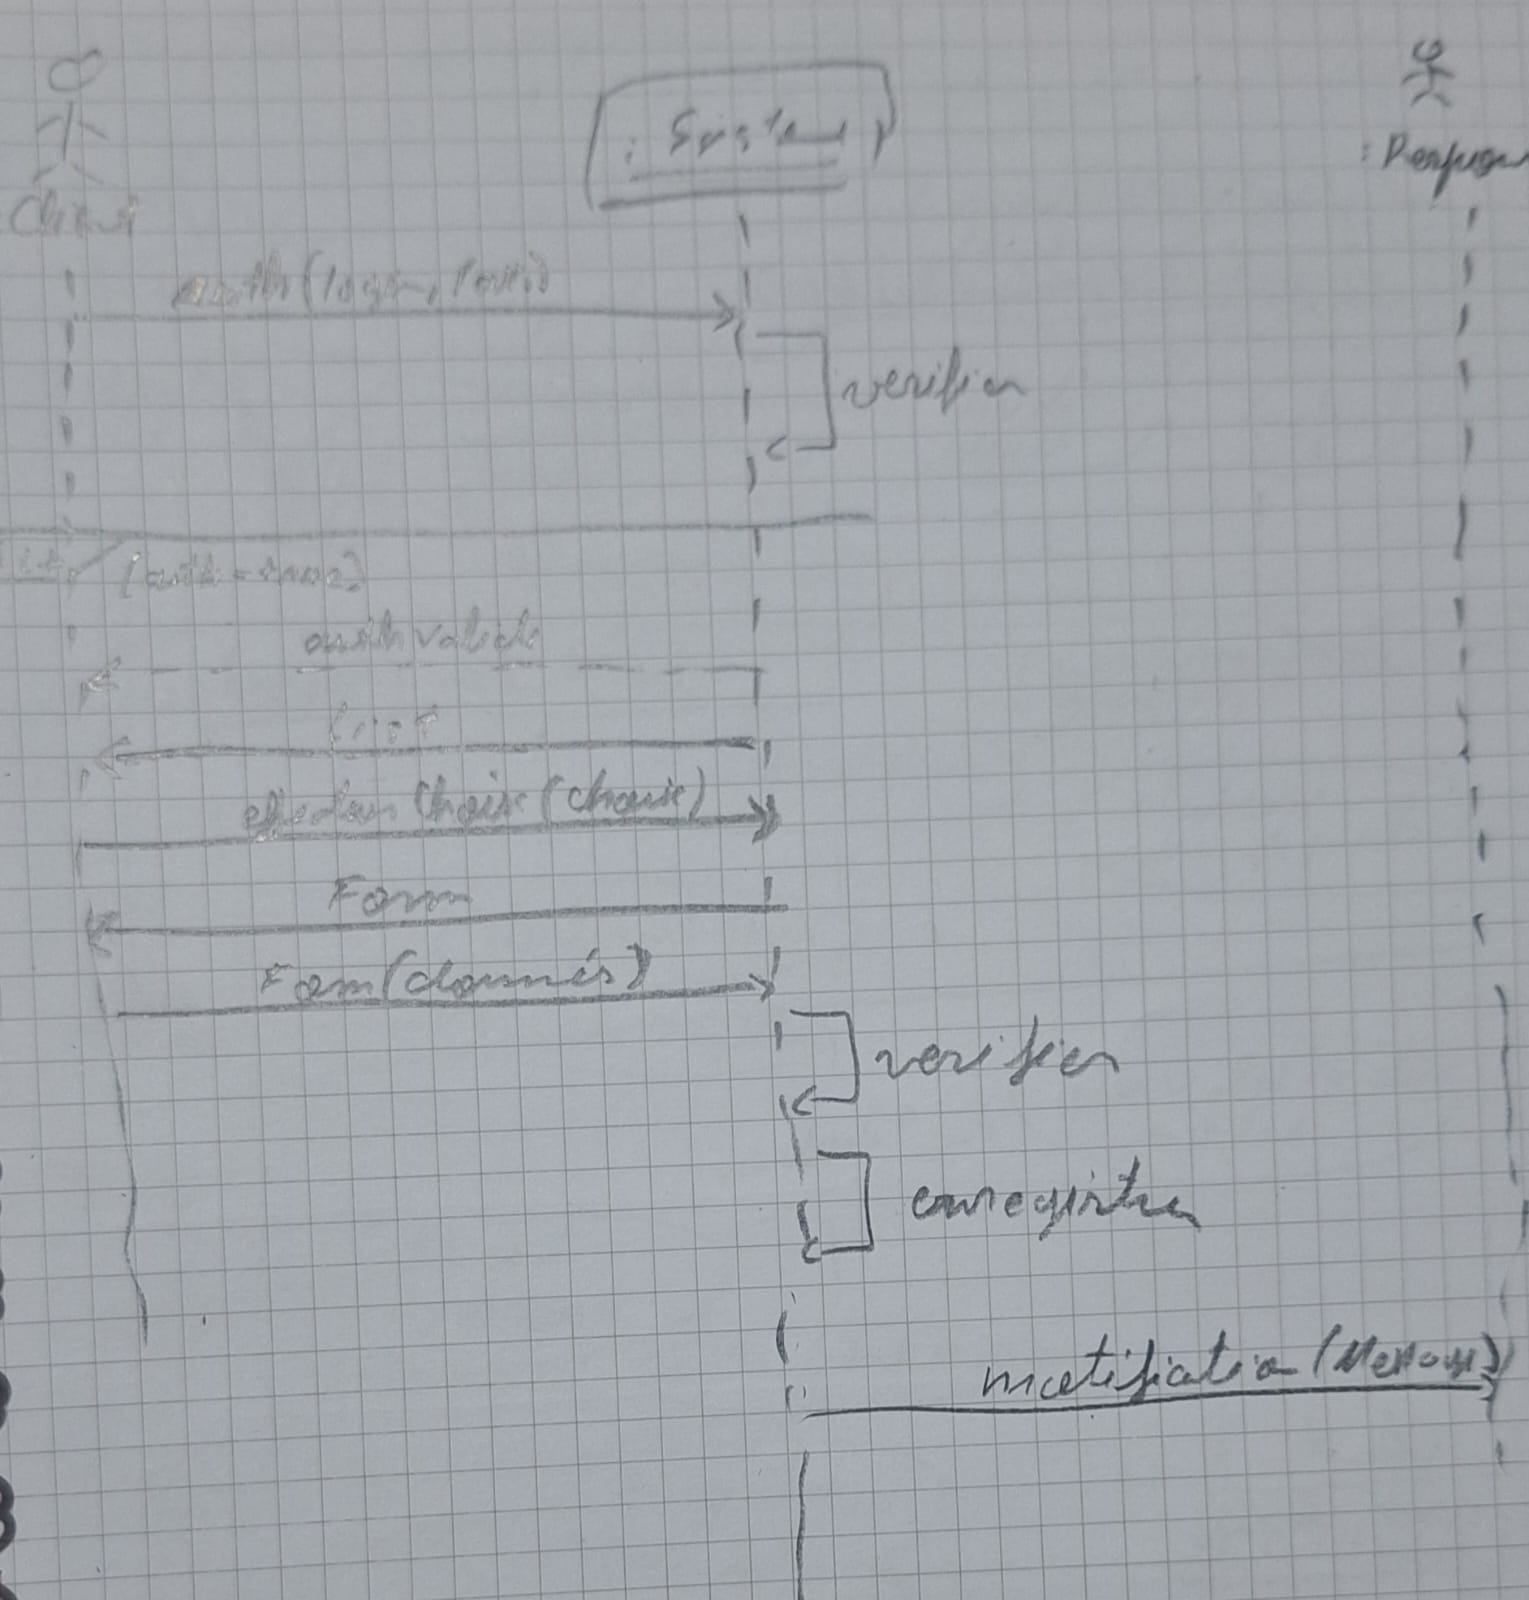 : System
Client
auth(login, pass)
verifier
[auth = true]
auth valide
List
effectuer Choix (choix)
Form
Form(données)
verifier
enregistrer
notification (Message)